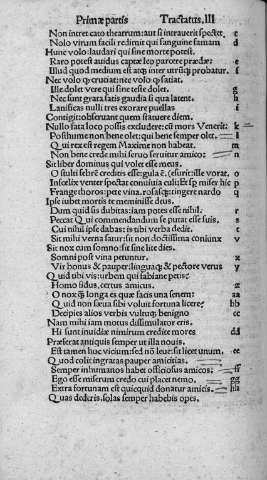 Primæ partis Tractatus.III
Non intret cato theatrum: aut si intrauerit spectet. c
Nolo virum facili redimit qui sanguine famam d
Hunc volo: laudari qui sine morte potest.
Raro potest auidus captæ leo parcere prædæ: e
Illud quod medium est atq; inter utrūq; probatur. f
Nec volo q̄ cruciat: nec volo q̄ satiat.
Ille dolet vere qui sine teste dolet. g
Nec sunt grata satis gaudia si qua latent. h
Lanificas nulli tres exorare puellas i
Contigit: obseruant quem statuere diem.
Nulla fata loco possis excludere: cū mors Venerit: k
Posthume non bene olet: qui bene semper olet. l
Qui rex est regem Maxime non habeat. m
Non bene crede mihi seruo seruitur amico: n
Sit liber dominus qui volet esse meus.
O stulti febrē creditis esse: gula ē. (esurit: ille vorat. o
Infœlix venter spectat conuiuia culi: Et sp̄ miser hic p
Frange thoros: pete vina. rosas cape: tingere nardo q
Ipse iubet mortis te meminisse deus.
Dum quid das dubitas: iam potes esse nihil. r
Peccat Qui commendandum se putat esse suis, s
Cui nihil ipse dabas: is tibi verba dedit. t
Sit mihi verna satur: sit non doctissima coniunx v
Sit nox cum somno: sit sine lite dies.
Somni post vina petuntur. x
Vir bonus & pauper: linguaq; & pectore verus y
Quid tibi vis: urbem qui fabiane petis:
Homo fidus, certus amicus. z
O nox q̄ longa es quæ facis una senem? aa
Quid non sæua sibi voluit fortuna licere; bb
Decipies alios verbis vultuq; benigno cc
Nam mihi iam motus dissimulator eris.
Hi sunt inuidiæ nimirum credite mores dd
Præferat antiquis semper ut illa nouis.
Est tamen hoc vicium: sed nō leue: sit licet unum. ee
Quod colit ingratas pauper amicitias.
Semper inhumanos habet officiosus amicos: ff
Ego esse miserum credo cui placet nemo. gg
Extra fortunam est quicquid donatur amicis. hh
Quas dederis, solas semper habebis opes.